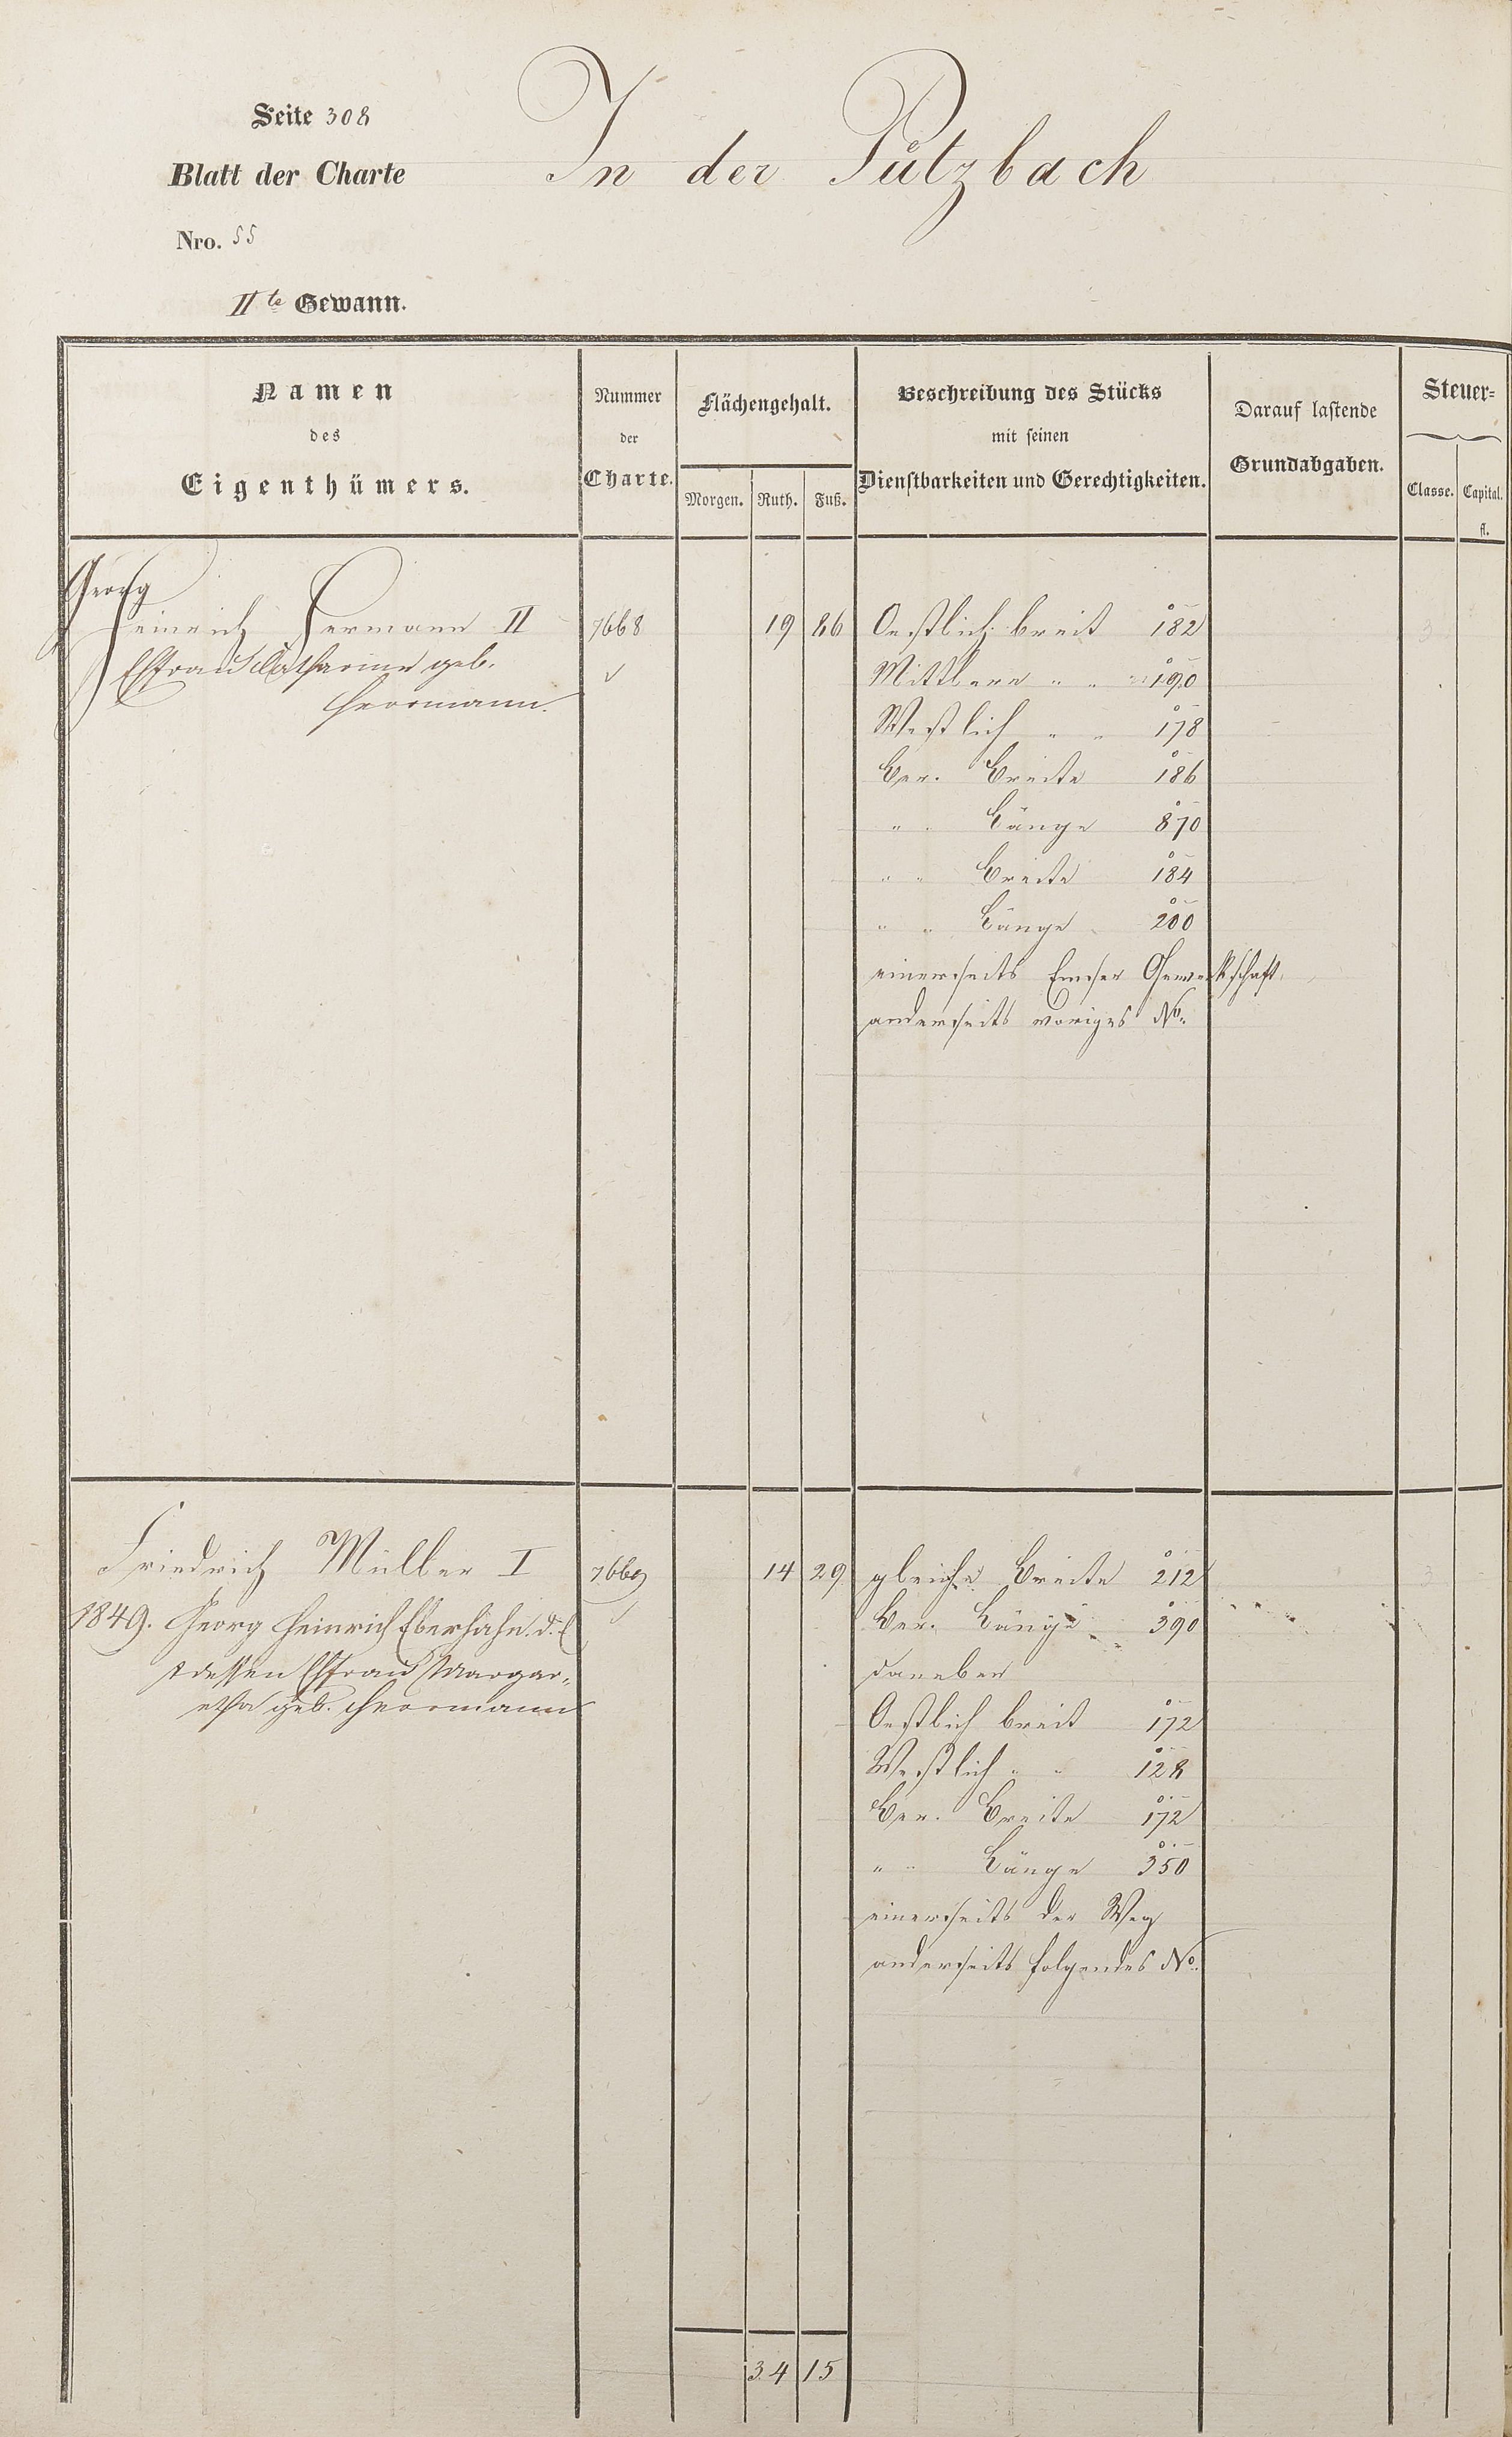 Seite 308
Blatt der Charte
Nro. 55
IIte Gewann.
In der Pützbach
Namen
des
Eigenthümers.
Nummer
der
Charte.
Flächengehalt.
Morgen. Ruth. Fuß.
Beschreibung des Stücks
mit seinen
Dienstbarkeiten und Gerechtigkeiten.
Darauf lastende
Grundabgaben.
Steuer-
Classe. Capital.
fl.
Georg
Heinrich Hermann II 7668 19 86 Oestlich breit 182
Ehfrau Catharine geb. Mittlere " " 190
Herrmann. Westlich " " 178
Ger. Breite 186
" " Länge 870
" " Breite 184
" " Länge 200
einerseits Emser Gemarkschaft
anderseits voriges No.
Friedrich Müller I 7669 14 29 gleiche Breite 212
1849. Georg Heinrich Eberhahn Ger. Länge 390
dessen Ehfrau Margar- daneben
etha geb. Herrmann Oestlich breit 172
Westlich " " 128
Ger. Breite 172
" " Länge 350
einerseits der Weg
anderseits folgendes No.
34 15